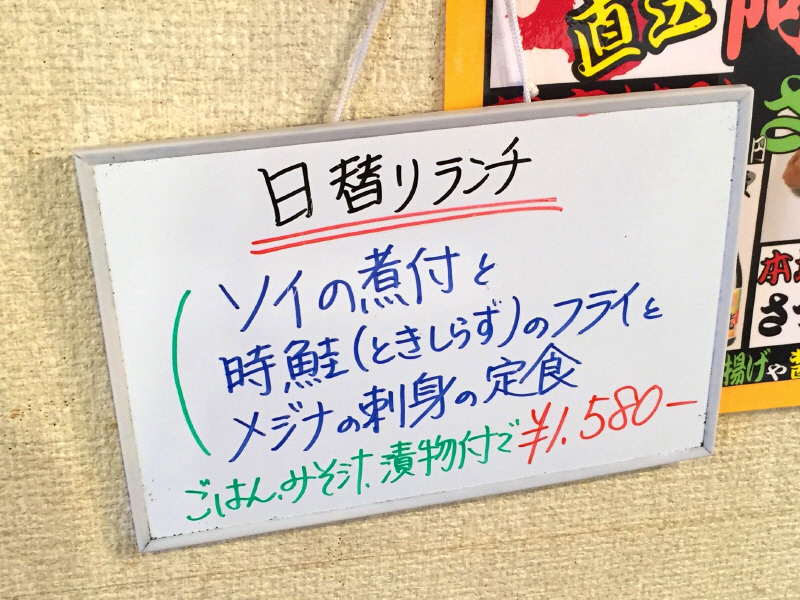 日替りランチ
ソイの煮付と
時鮭(ときしらず)のフライと
メジナの刺身の定食
ごはん、みそ汁、漬物付で ¥1.580-
直送
円
本
さ
揚げや